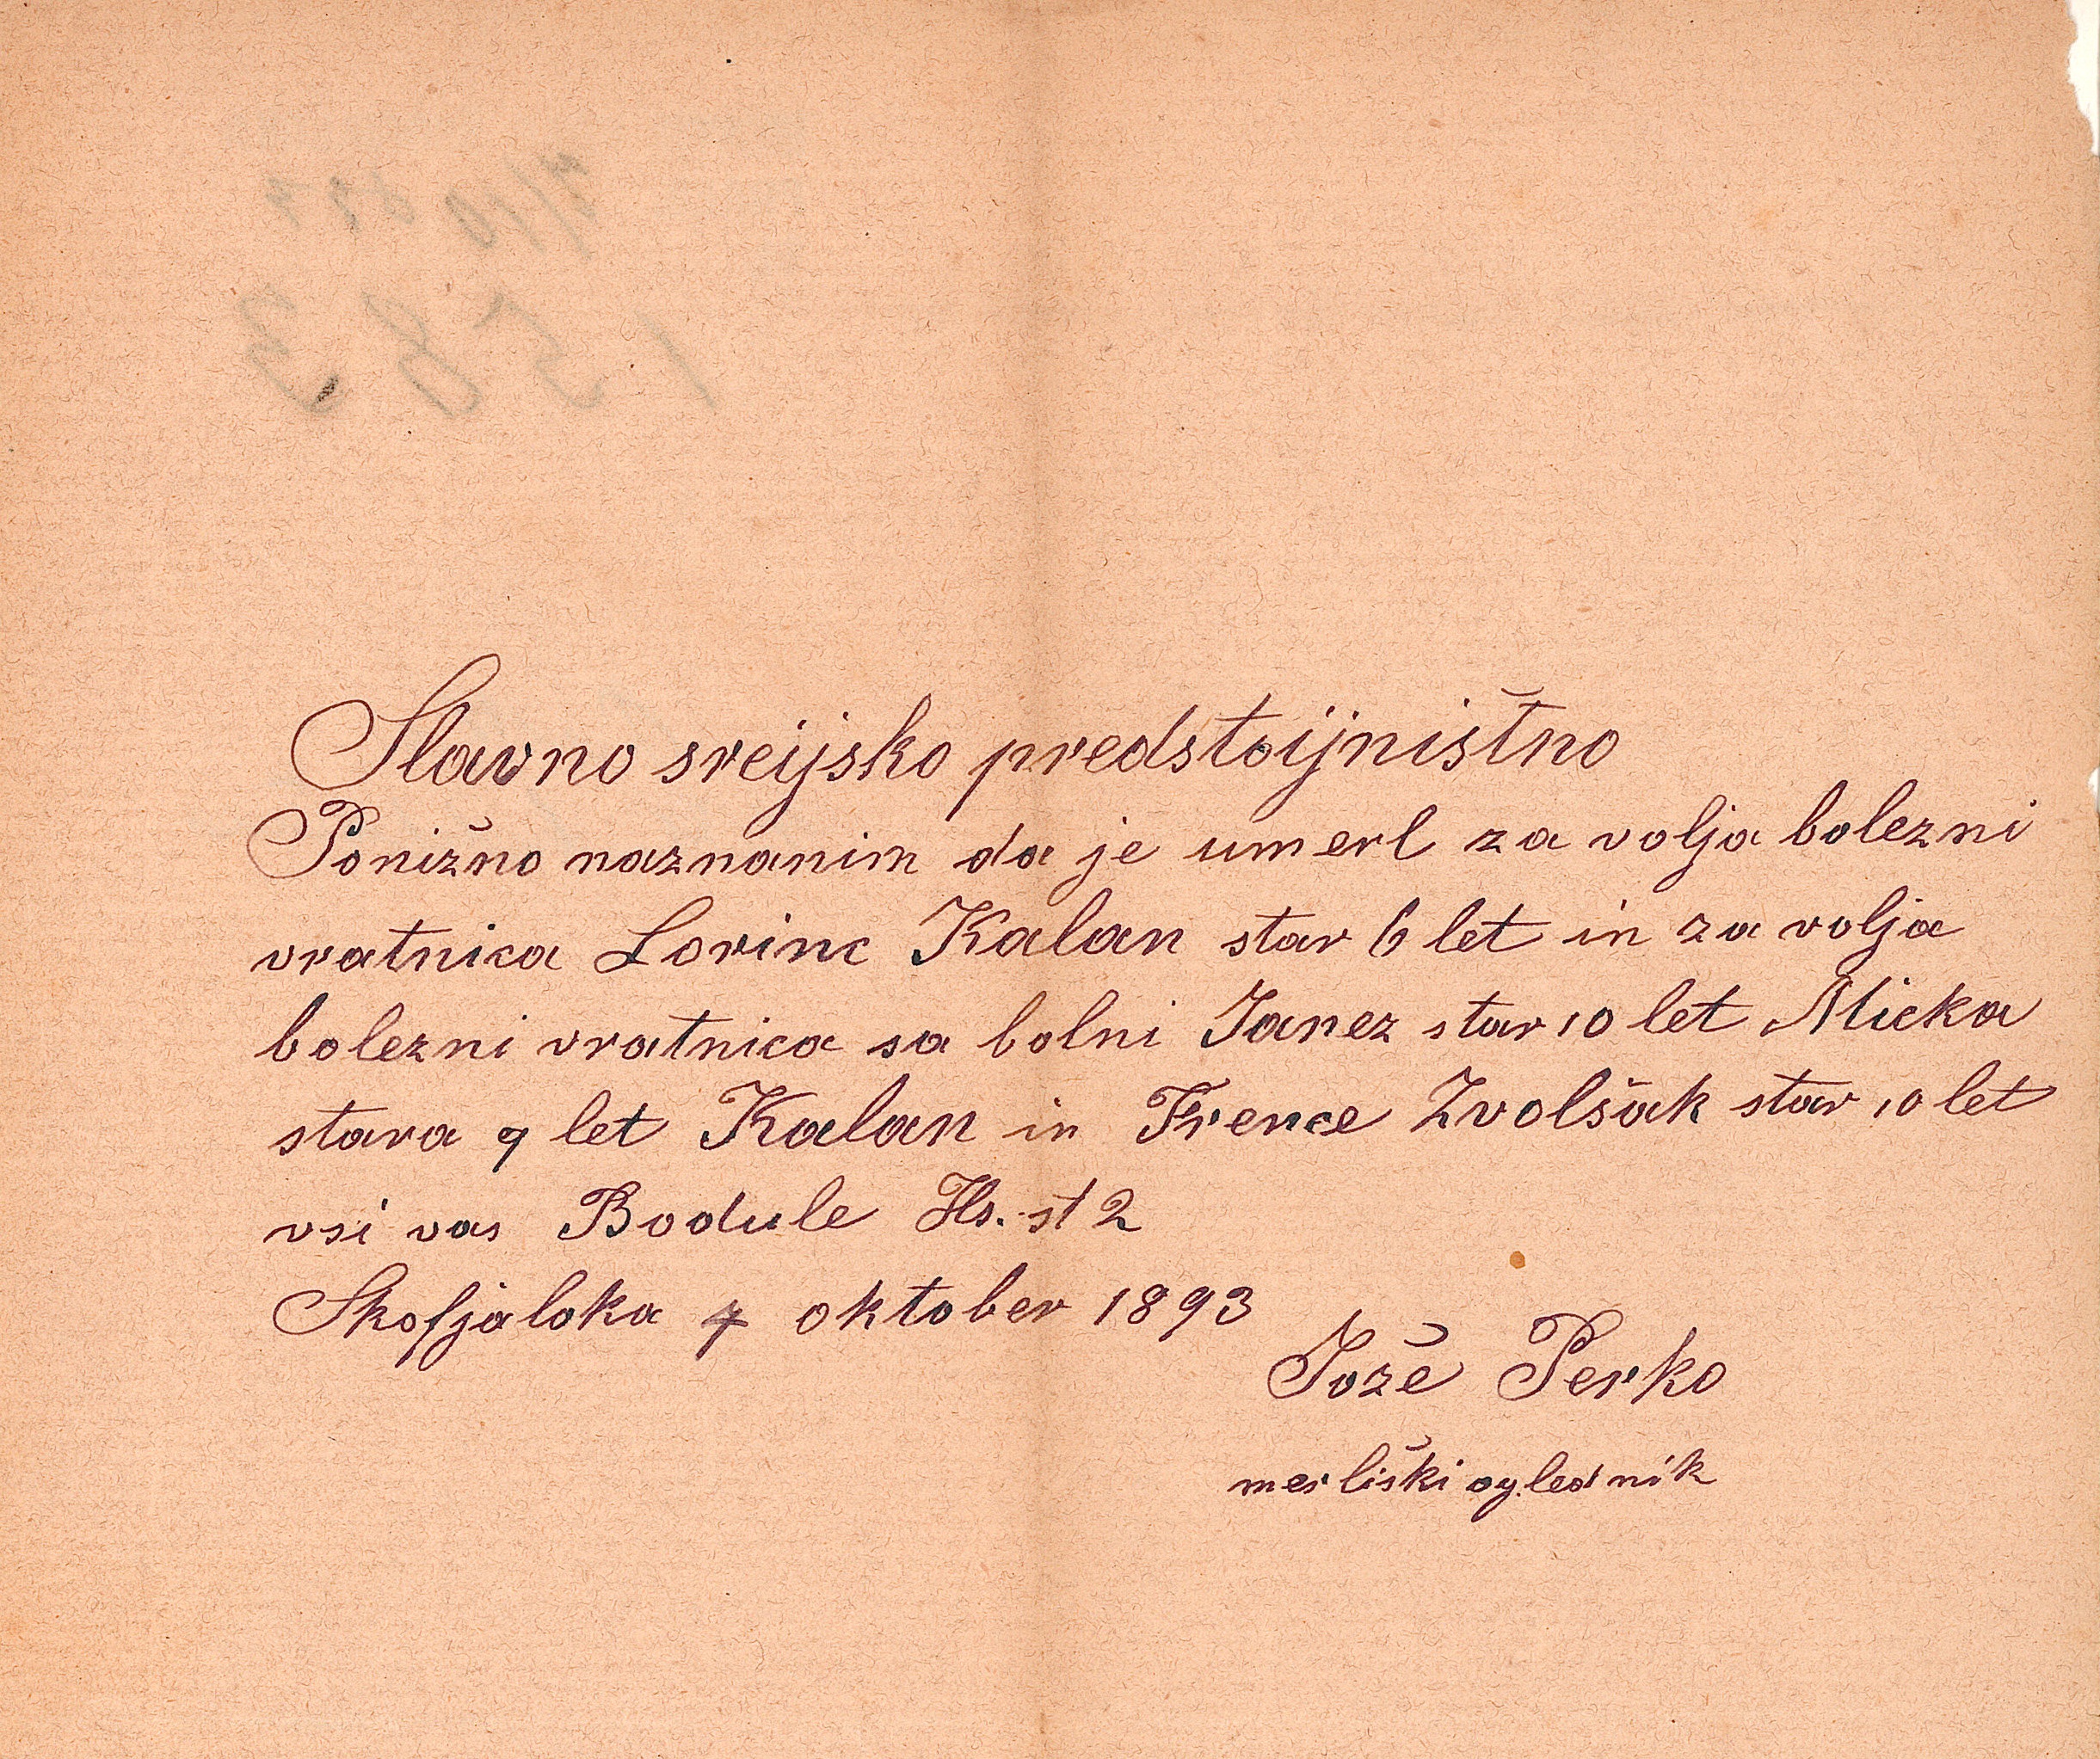 Slavno sreijsko predstoijništno
Ponižno naznanim da je umerl za volja bolezni
vratnica Lovinc Kalan star 6 let in za volja
bolezni vratnica sa bolni Janez star 10 let Micka
stara 9 let Kalan in Frence Zvolšak star 10 let
vsi vas Bodule Hs. št 2
Skofjaloka 7 oktober 1893
Jože Perko
merliški oglednik